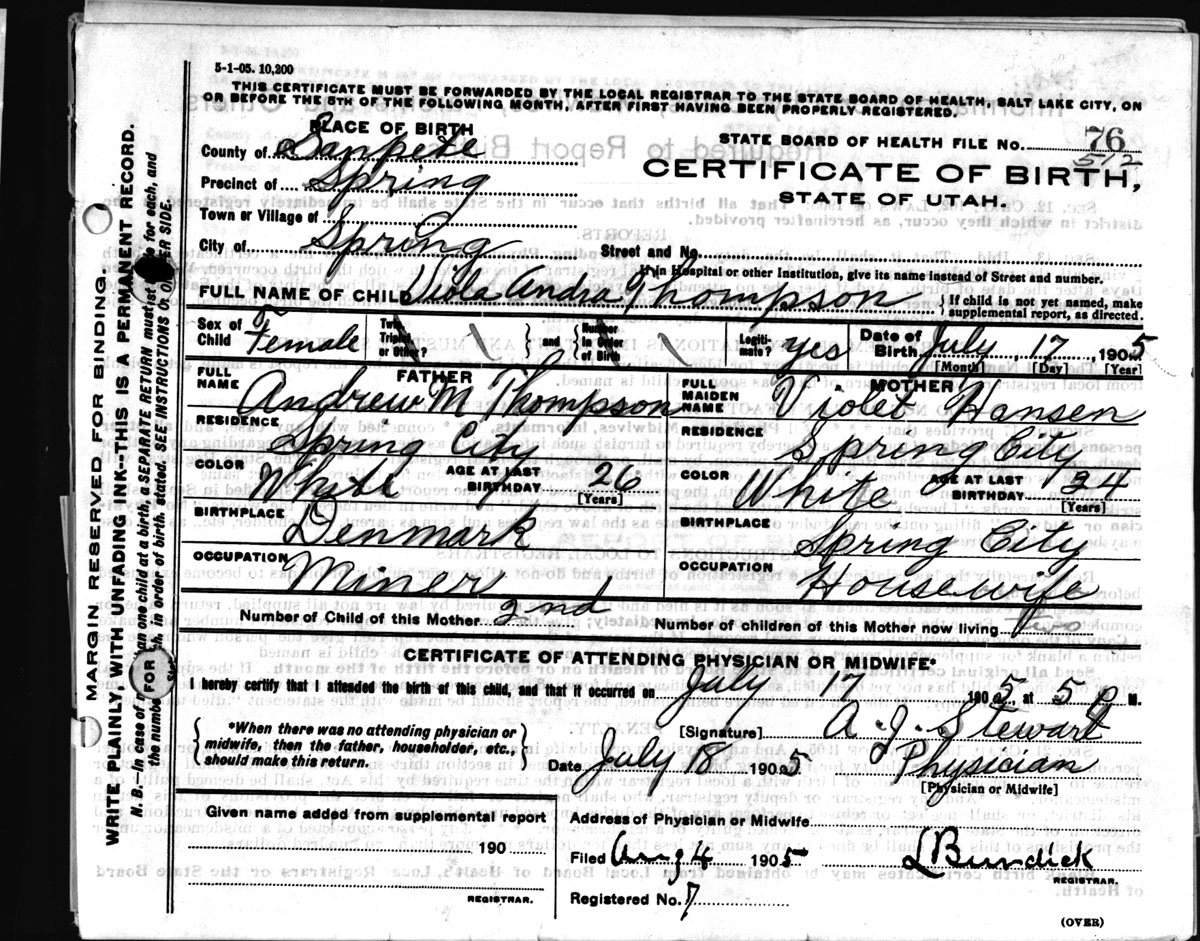 5-1-05. 10,200
THIS CERTIFICATE MUST BE FORWARDED BY THE LOCAL REGISTRAR TO THE STATE BOARD OF HEALTH, SALT LAKE CITY, ON
OR BEFORE THE 5TH OF THE FOLLOWING MONTH, AFTER FIRST HAVING BEEN PROPERLY REGISTERED.
PLACE OF BIRTH
STATE BOARD OF HEALTH FILE No. 76
512
County of Sanpete
CERTIFICATE OF BIRTH,
Precinct of Spring
STATE OF UTAH.
Town or Village of
City of Spring
Street and No.
If in Hospital or other Institution, give its name instead of Street and number.
FULL NAME OF CHILD Viola Andra Thompson
{ If child is not yet named, make
supplemental report, as directed.
Sex of Child Female
Twin, Triplet, or Other?
{ and }
Number in Order of Birth
Legitimate? yes
Date of Birth July 17, 1905
[Month] [Day] [Year]
FATHER
FULL NAME Andrew M Thompson
MOTHER
FULL MAIDEN NAME Violet Hansen
RESIDENCE Spring City
RESIDENCE Spring City
COLOR White
AGE AT LAST BIRTHDAY 26
[Years]
COLOR White
AGE AT LAST BIRTHDAY 34
[Years]
BIRTHPLACE Denmark
BIRTHPLACE Spring City
OCCUPATION Miner
OCCUPATION Housewife
Number of Child of this Mother 2nd
Number of children of this Mother now living two
CERTIFICATE OF ATTENDING PHYSICIAN OR MIDWIFE*
I hereby certify that I attended the birth of this child, and that it occurred on July 17 1905, at 5 P M.
{ *When there was no attending physician or
midwife, then the father, householder, etc.,
should make this return. }
[Signature] A. J. Stewart
Date July 18 1905
Physician
[Physician or Midwife]
Given name added from supplemental report
190
REGISTRAR.
Address of Physician or Midwife
Filed Aug 4 1905
L Bundick
REGISTRAR.
Registered No. 7
(OVER)
MARGIN RESERVED FOR BINDING
WRITE PLAINLY, WITH UNFADING INK--THIS IS A PERMANENT RECORD.
N. B.—In case of than one child at a birth, a SEPARATE RETURN must for each, and
the number in order of birth stated. SEE INSTRUCTIONS ON SIDE.
FOR